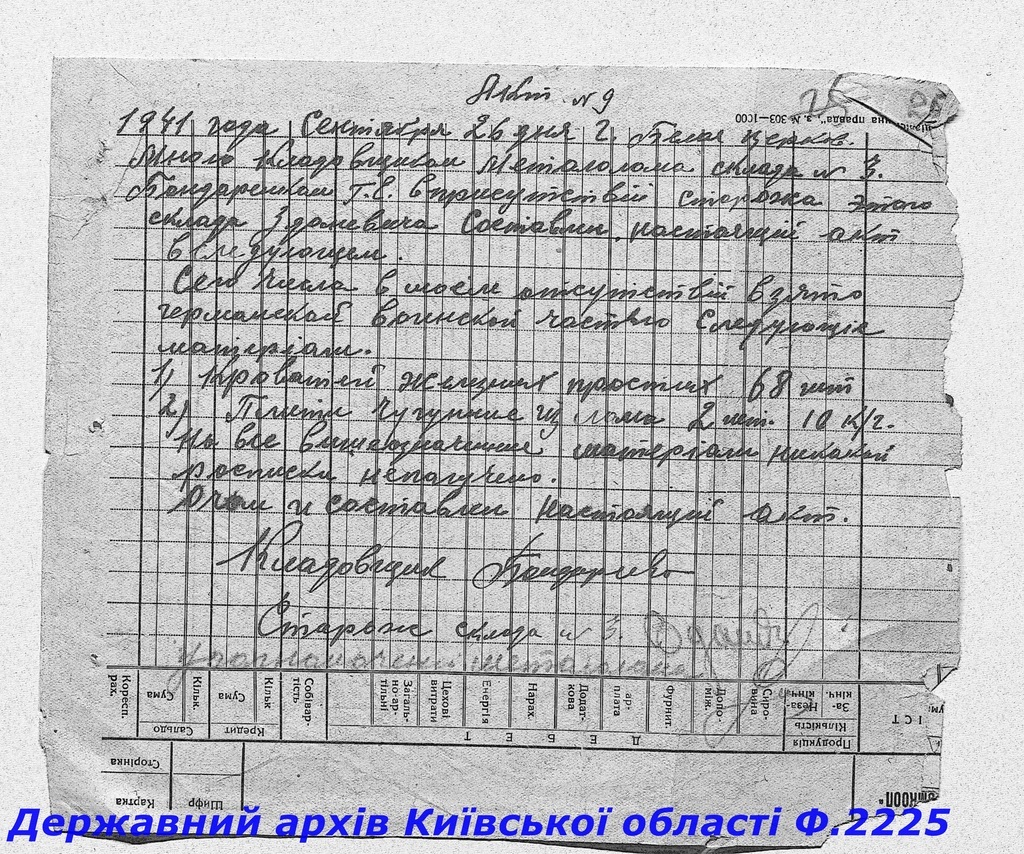 Акт №9
1941 года Сентября 26 дня г. Белая церков.
Мною Кладовщиком Металолома склада № 3.
Бондаренком Г.Е. вприсутствіи сторожа этого
склада Зданевича Составлен настоящий акт
вследующем.
Сего числа в моем отсутствіи взято
германской воинской частью следующіе
матеріали.
1) Кроватей железних простих 68 шт
2) Плити чугунние из лома 2 шт. 10 к/г.
На все вишеозначение матеріали никакой
росписки неполучено.
Очем и составлен настоящий акт.
Кладовщик Бондаренко
Сторож склада № 3.
Уполномочений металолома
Кореспр. рах.
Сума
Кільк.
Сальдо
Сума
Кільк.
Кредит
Собівартість
Загально-ар-тільні
Цехові витрати
Енергія
Нарах.
Додаткова
зарплата
Фурніт.
Допоміж.
Сировина
ДЕБЕТ
Незакінч.
Закінч.
Кількість
Продукція
Сторінка
Картка
Шифр
правда", з. № 303—1С00
Державний архів Київської області Ф.2225